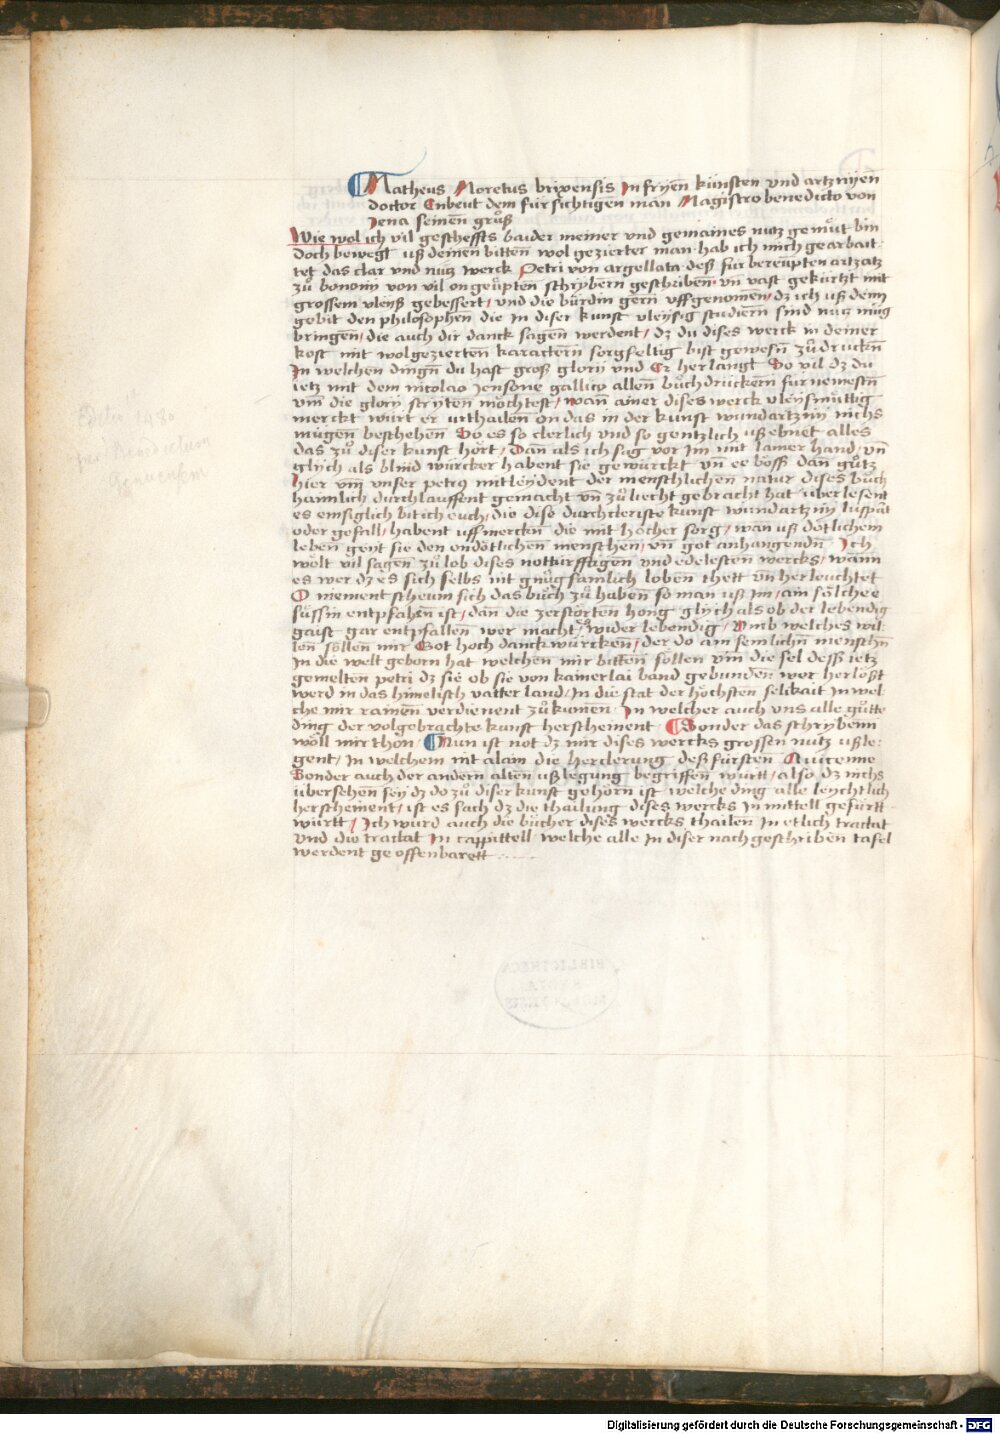 Matheus Moretus brixensis In fryen künsten vnd artznyen
doctor Enbeut dem fürsichtigen man Magistro benedicto von
Jena seinen grůß
Wie wol ich vil gescheffts baider meiner vnd gemaines nutz gemůt bin
doch bewegt uß deinen bitten wol gezierter man hab ich mich gearbait
tet das clar vnd nutz werck Petri von argellata deß fürberempten artzatz
zů bonony von vil ongeůpten schrybern geschriben vn̄ vast gekürtzt mit
grossem vleyß gebessert / vnd die bürdin gern uffgenomen / dz ich uß dem
gebit den philosophen die In diser kunst vleysig studiern sind nutz müg
bringen / die auch dir danck sagen werdent / dz du dises werck in deiner
kost mit wolgezierten karactern sorgfeltig bist gewesn̄ zů druckn̄
In welchen dingn̄ du hast groß glory vnd Er herlangt So vil dz du
ietz mit dem nicolao Jensone gallico allen bůchdrückern fürnemestn̄
vm̄ die glory stryten möchtest / wan̄ ainer dises werck vleyßmüttig
merckt würt er urthailen on das in der kunst wundartzny nichs
mügen beschehen So es so clerlich vnd so gentzlich uß ebnet alles
das zů diser kunst hört / Dan̄ als ich sag vor Im mit lamer hand / vn̄
glych als blind würcker habent sie gewürckt vn̄ ee böss dan̄ gůtz
hier vm̄ vnser petrus mitleydent der menschlichen natur dises bůch
haimlich durchlauffent gemacht vn̄ zů liecht gebracht hat überlesent
es emsiglich bit ich euch / die diso durchcleriste kunst wundartzny luspāt
oder gefall / habent uff mercken die mit hocher sorg / wan uß dötlichem
leben gent sie den endötlichen menschen / vn̄ got anhangendn̄ Ich
wölt vil sagen zů lob dises notturfftigen vnd edelesten wercks / wann
es wer dz es sich selbs nit gnůgsamlich loben thett vn̄ herleuchtet
O niement scheum sich das bůch zů haben so man uß Im / ain sölche
süssin entpfahen ist / dan̄ die zerstörten hong glych als ob der lebendig
gaist gar entpfallen wer macht er wider lebendig / Umb welches wil-
len söllen mir Got hoch danck würcken / der do ain semlichn̄ menschn̄
In die welt geborn hat welchen mir bitten söllen vm̄ die sel deß ietz
gemelten petri dz sie ob sie von kainerlai band gebunden wer herlößt
werd in das himelisch vatter land / In die stat der höchsten selikait In wel-
che mir ramen verdienent zů kumen / In welcher auch vns alle gůtte
ding der volgebrachte kunst herschement / Sonder das schryben
wöll mir thon / Nun ist not dz mir dises wercks grossen nutz ußle-
gent / In welchem nit alain die herclerung deß fürsten Auicenne
Sonder auch der andern alten ußlegung begriffen würt / also dz nichs
übersehen sey dz do zů diser kunst gehörn ist welche ding alle leychtlich
herschement / ist es sach dz die thailung dises wercks In mittell gefürtt
württ / Ich würd auch die bücher dises wercks thailen In etlich tractat
vnd die tractat In cappittell welche alle In diser nach geschriben tafel
werdent ge offenbarett
Editio 1480
per Benedictum
Genuensem
BIBLIOTHECA
REGIA
MONACENSIS
Digitalisierung gefördert durch die Deutsche Forschungsgemeinschaft - DFG